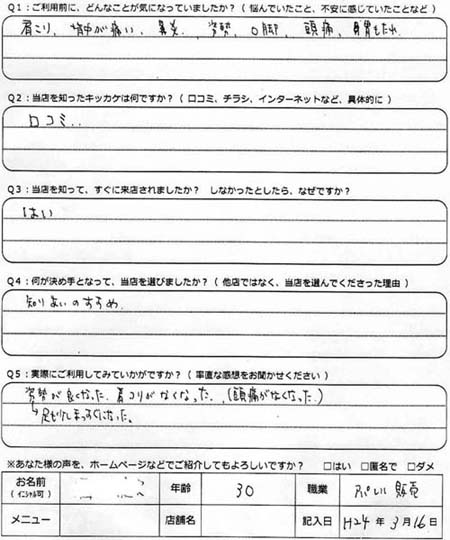 Q1:ご利用前に、どんなことが気になっていましたか?( 悩んでいたこと、不安に感じていたことなど )
肩こり、背中が痛い、鼻炎、姿勢、O脚、頭痛、胃もたれ
Q2:当店を知ったキッカケは何ですか?( 口コミ、チラシ、インターネットなど、具体的に )
口コミ..
Q3:当店を知って、すぐに来店されましたか? しなかったとしたら、なぜですか?
はい
Q4:何が決め手となって、当店を選びましたか?( 他店ではなく、当店を選んでくださった理由 )
知りあいのすすめ.
Q5:実際にご利用してみていかがですか?( 率直な感想をお聞かせください )
姿勢が良くなった. 肩コリがなくなった. (頭痛がなくなった.)
↳足も少しまっすぐになった。
※あなた様の声を、ホームページなどでご紹介してもよろしいですか? □はい □匿名で □ダメ
お名前 (イニシャル可) 年齢 30 職業 販売
メニュー 店舗名 記入日 H24年3月16日